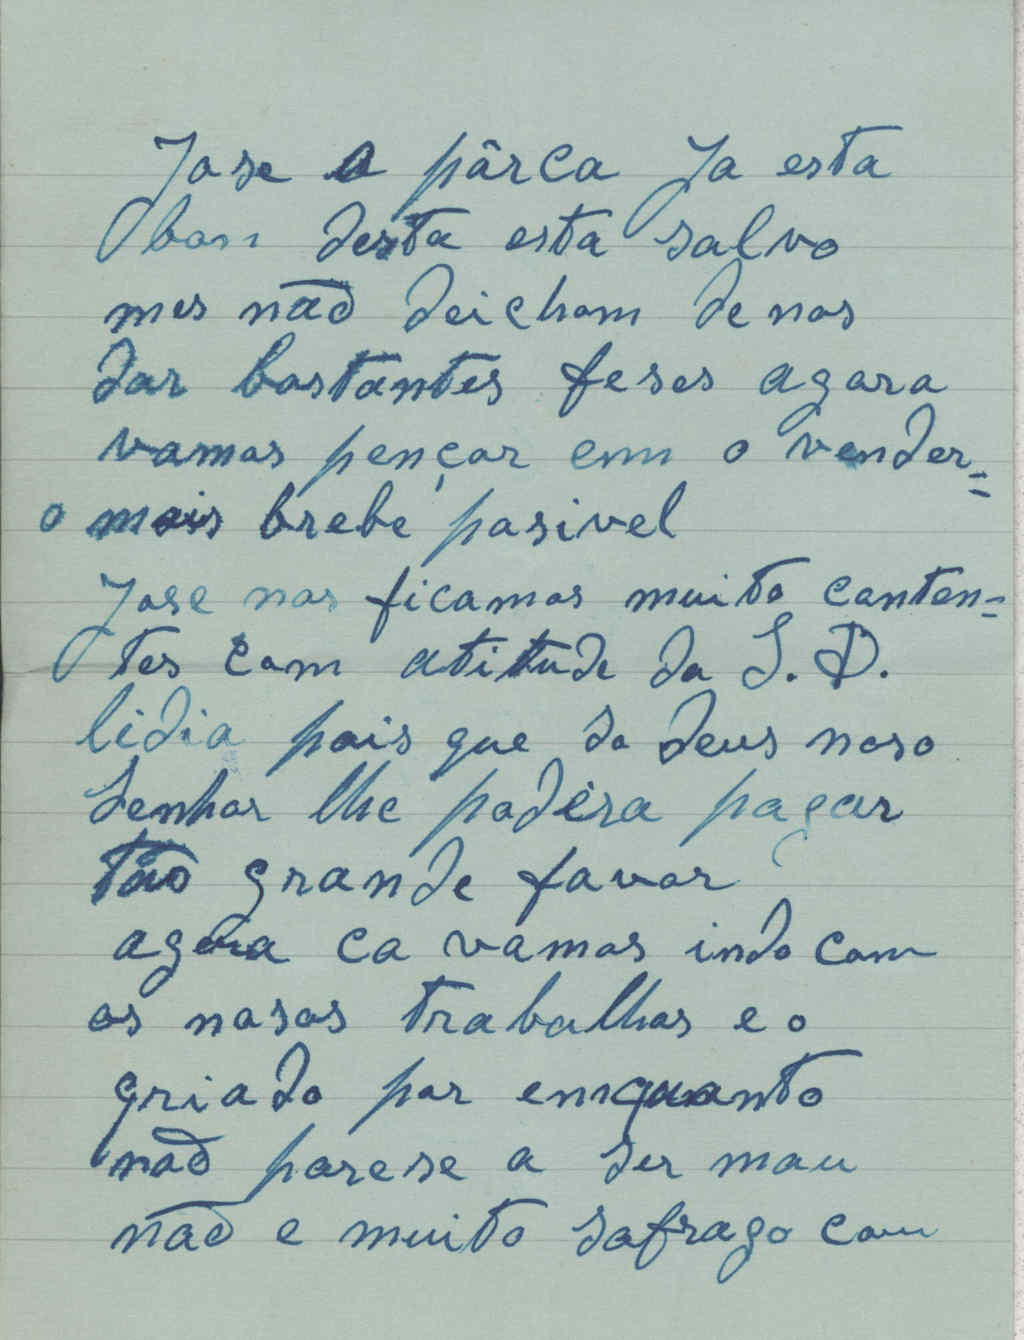 Jose o pârco Ja esta
bom desta esta salvo
mes não deicham de nos
dar bastantes feses agora
vamos pençar em o vender=
o mais brebe posivel
Jose nos ficamos muito conten=
tes com atitude da S. D.
lidia pois que so deus noso
Senhor lhe podéra pagar
tão grande favor
agora ca vamos indo com
os nosos trabalhos e o
griado por emquanto
não parese a ser mau
não e muito safrago com